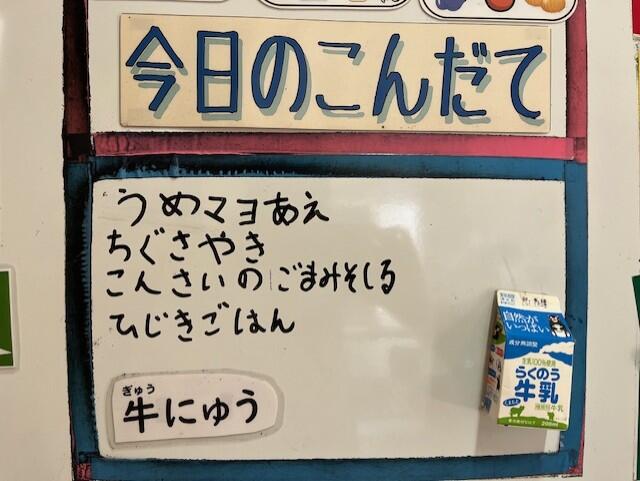 今日のこんだて
うめマヨあえ
ちぐさやき
こんさいのごまみそしる
ひじきごはん
ぎゅう
牛にゅう
自然が
いっぱい
成分無調整
生乳100%使用
らくのう
牛乳
200ml